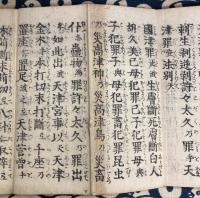 生剥逆剥許々太久乃罪乎天
津罪止法別
国津罪止波生膚断死膚断白人
胡久美己母犯罪己子犯罪母与
子犯罪子与母犯罪畜犯罪昆虫
乃災高津神乃災高津鳥乃災畜
仆志蠱物為罪許々太久乃罪出
如此出波天津宮事以天天津
金木乎本打切末打断天千座乃
置座尓置足波志天天津菅曽
本苅断末苅切天八針尓取辟